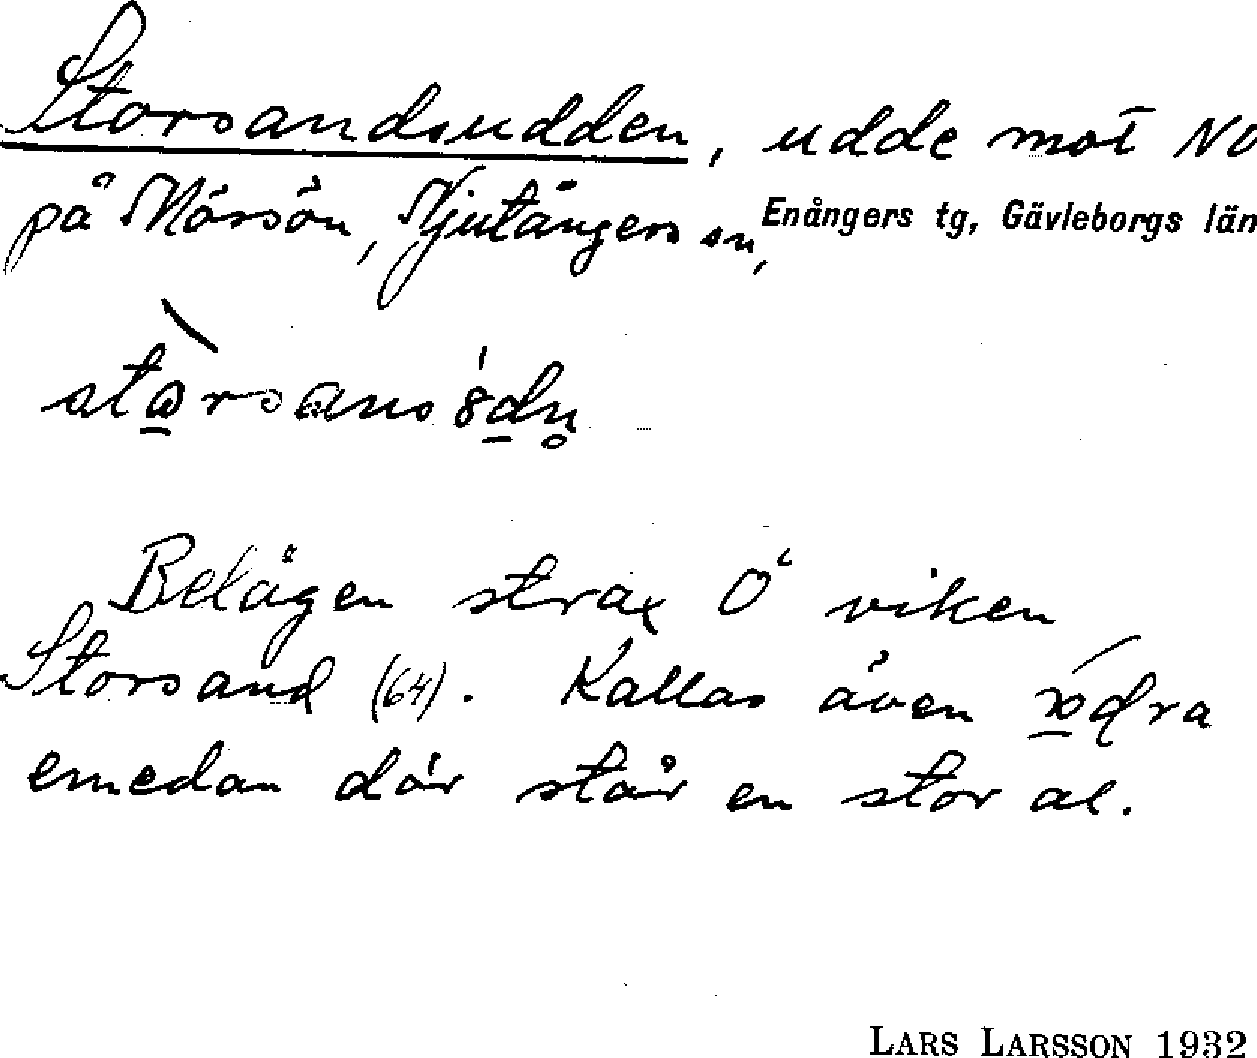 Storsandsudden, udde mot NO
på Mössön, Njutångers sn, Enångers tg, Gävleborgs län
Belägen strax O viken
Storsand (64). Kallas även
emedan där står en stor al.
LARS LARSSON 1932